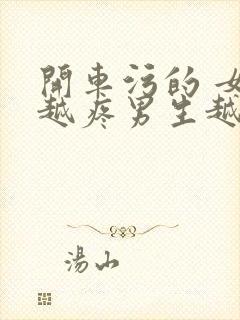 開車污的 女
越疼男生越
湯山